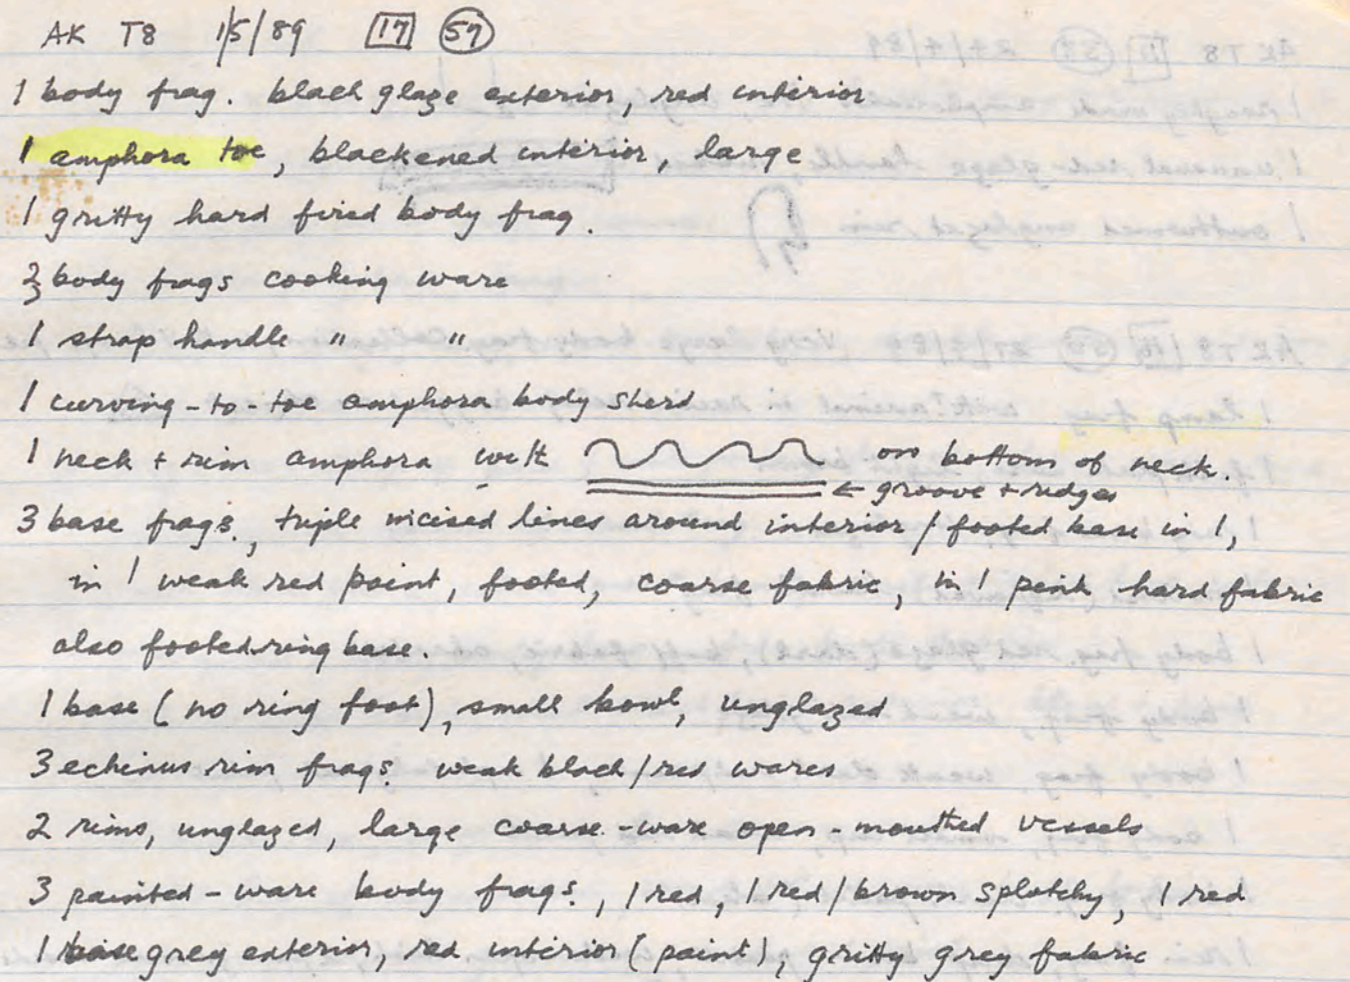 AK T8 1/5/89 17 57
1 body frag. black glaze exterior, red interior
1 amphora toe, blackened interior, large
1 gritty hard fired body frag.
3 body frags cooking ware
1 strap handle " "
1 curving-to-toe amphora body sherd
1 neck + rim amphora with on bottom of neck.
← groove + ridges
3 base frags., triple incised lines around interior / footed base in 1,
in 1 weak red paint, footed, coarse fabric, in 1 pink hard fabric
also footed ring base.
1 base (no ring foot), small bowl, unglazed
3 echinus rim frags. weak black/red wares
2 rims, unglazed, large coarse-ware open-mouthed vessels
3 painted-ware body frags., 1 red, 1 red/brown splotchy, 1 red
1 base grey exterior, red interior (paint), gritty grey fabric